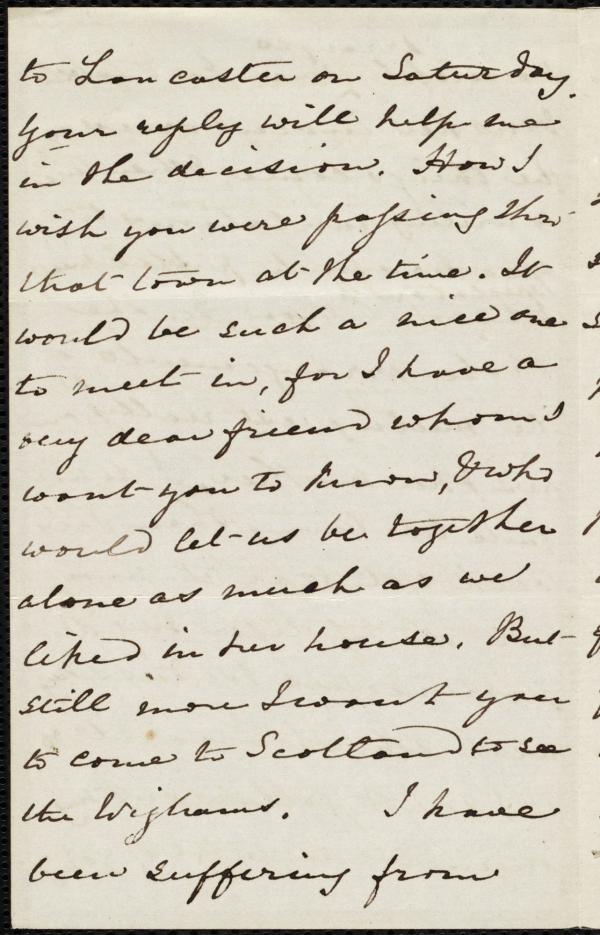 to Lancaster on Saturday.
Your reply will help me
in the decision. How I
wish you were passing thro'
that town at the time. It
would be such a nice one
to meet in, for I have a
very dear friend whom I
want you to know, & who
would let us be together
alone as much as we
liked in her house. But
still more I want you
to come to Scotland to see
the Wighams. I have
been suffering from